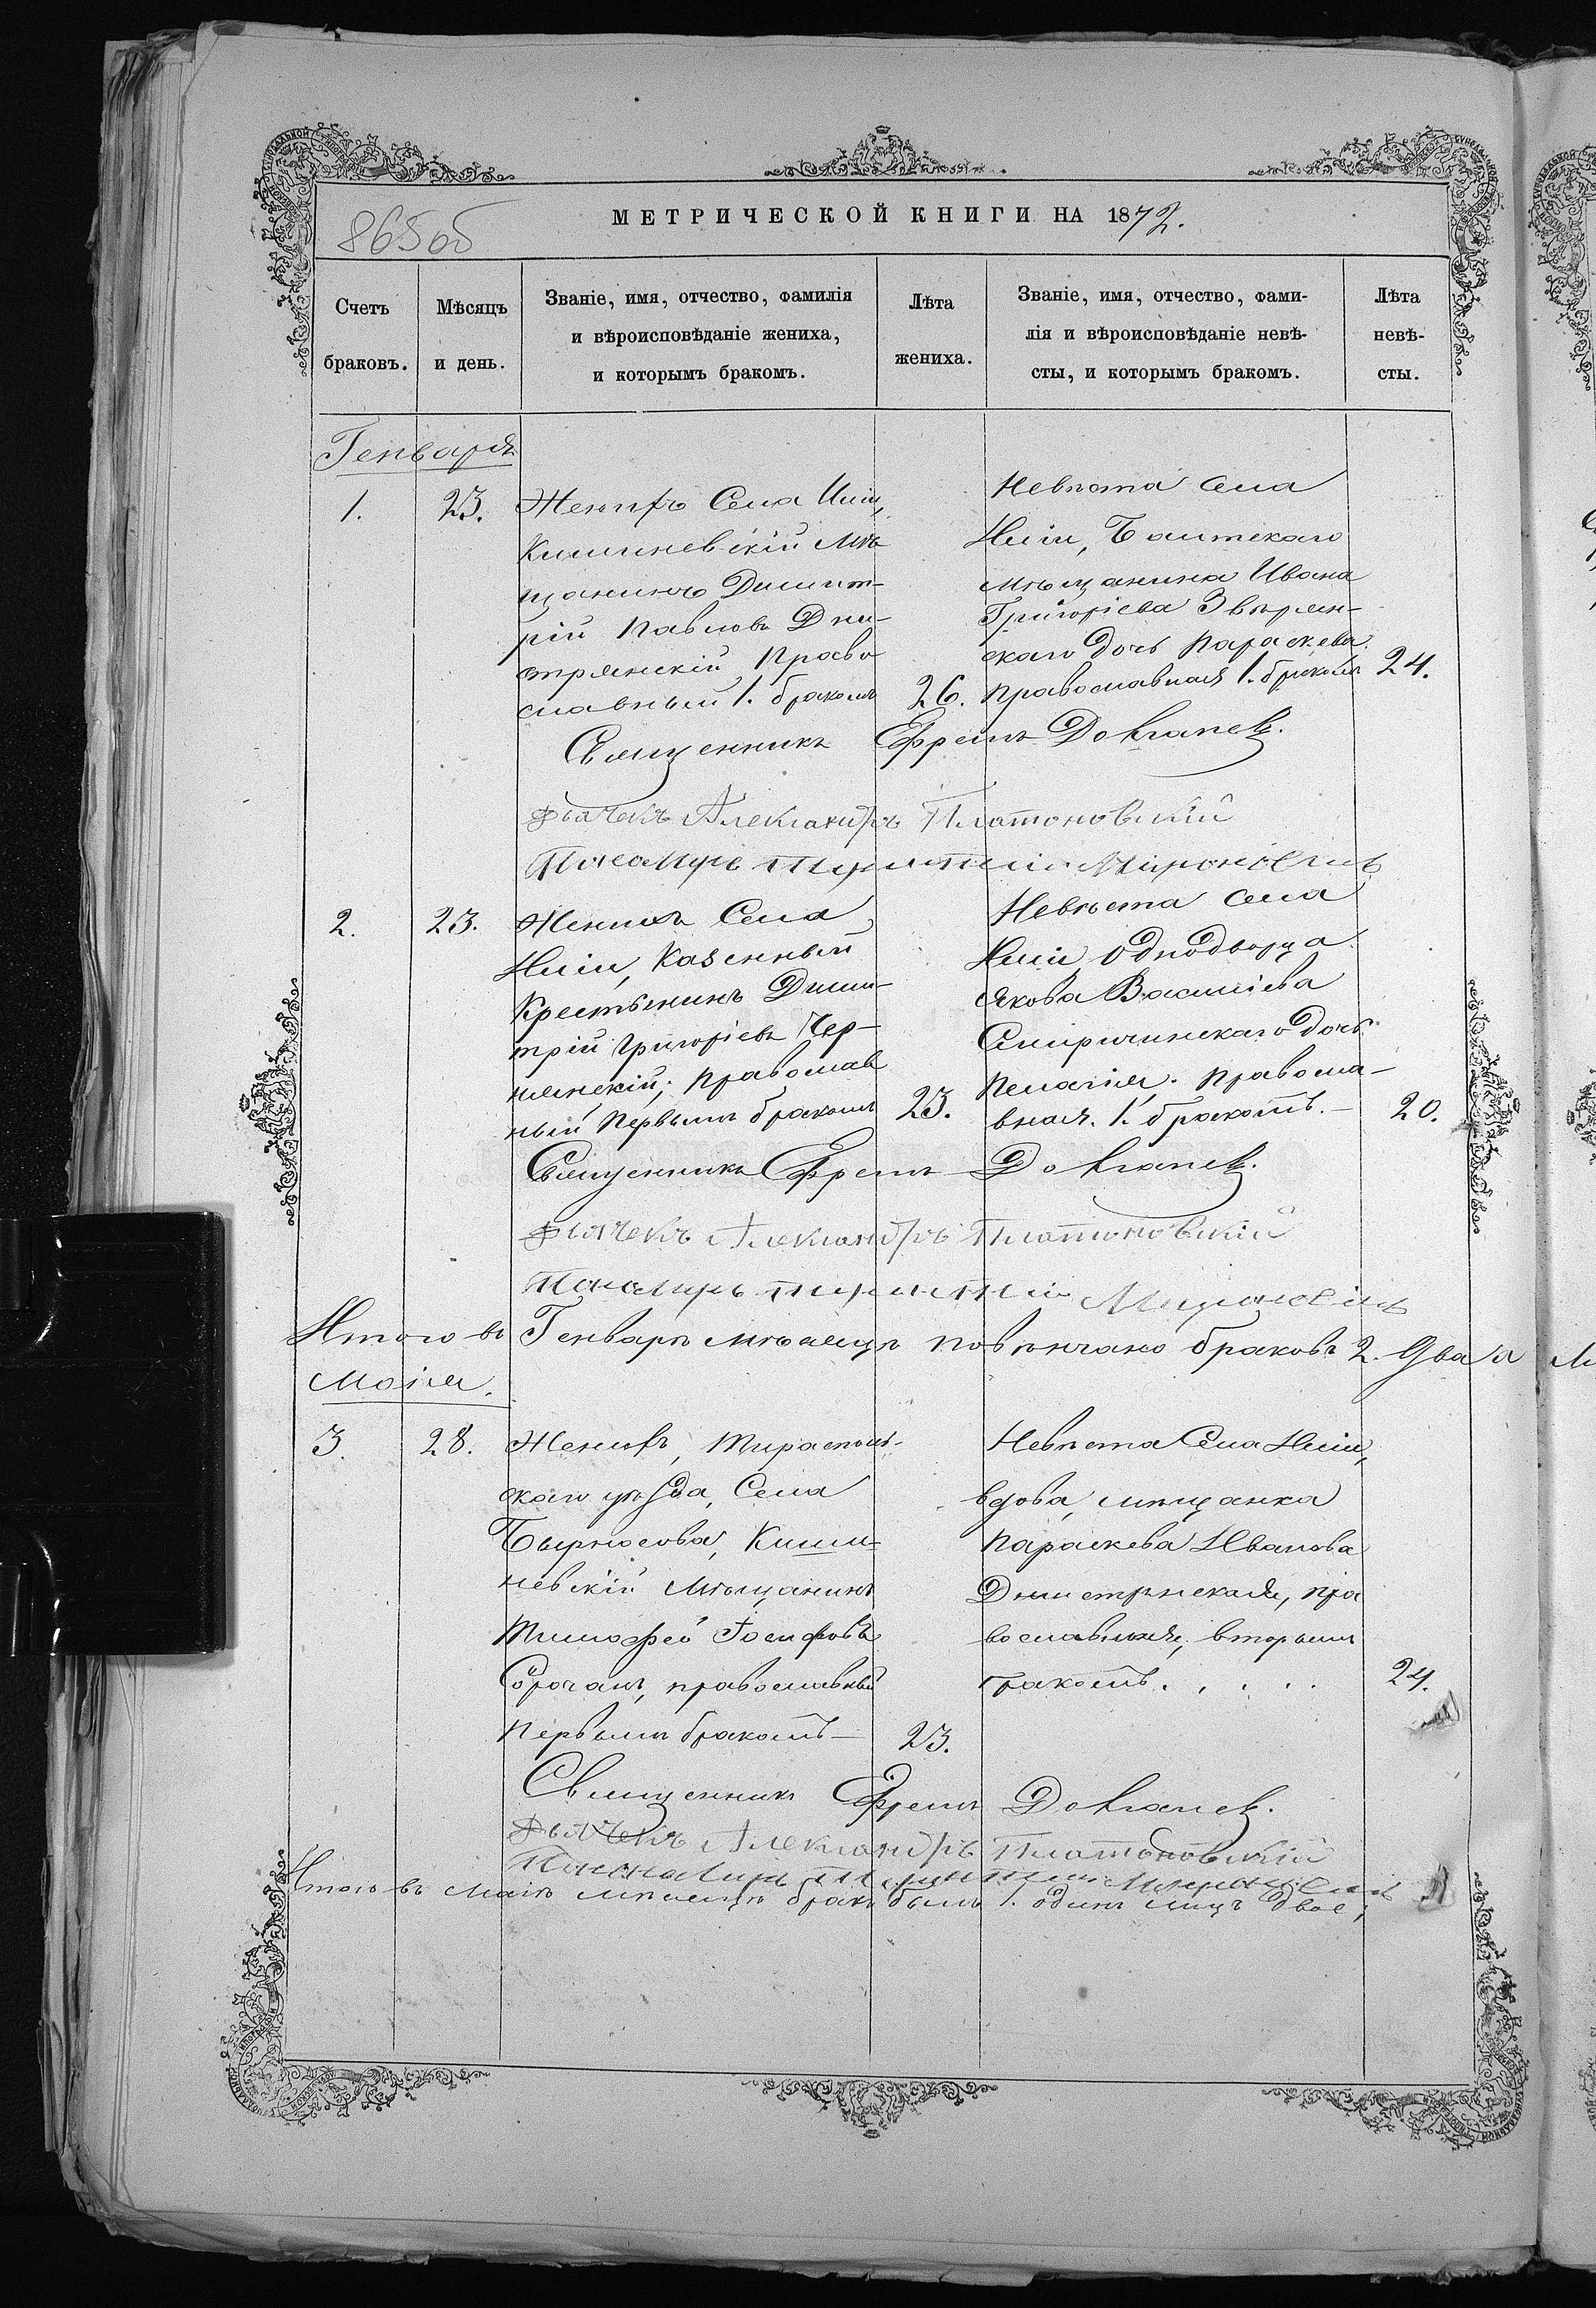 865 об
МЕТРИЧЕСКОЙ КНИГИ НА 1872.
Счетъ браковъ.
Мѣсяцъ и день.
Званіе, имя, отчество, фамилія
и вѣроисповѣданіе жениха,
и которымъ бракомъ.
Лѣта жениха.
Званіе, имя, отчество, фами-
лія и вѣроисповѣданіе невѣ-
сты, и которымъ бракомъ.
Лѣта невѣ- сты.
Генваря
1. 23.
Женихъ Села
Кишиневскій Мѣ
щанинъ Димит-
рій Павловъ Дни-
стрянскій Право
славный 1. бракомъ 26.
Невѣста села
Балтскаго
мѣщанина Ивана
Григоріева Звѣрян-
скаго дочь Параскева
православная 1. бракомъ 24.
Священникъ Ефремъ
Дьячекъ Александръ Платоновскій
Пономарь Мироновичъ
2. 23.
Женихъ Села
Казенный
Крестьянинъ Дими-
трій Григоріевъ Чер-
нянскій; православ
ный Первымъ бракомъ 23.
Невѣста села
Однодворца
Якова Василіева
дочь
Пелагія. Правосла-
вная. 1. бракомъ. — 20.
Священникъ Ефремъ
Дьячекъ Александръ Платоновскій
Пономарь Мироновичъ
Итого въ Генварѣ мѣсяцѣ повѣнчано браковъ 2. Два
Маія.
3. 28.
Женихъ, Тирасполь-
скаго уѣзда, Села
Киши-
невскій Мѣщанинъ
Тимофей Іосифовъ
Сорочанъ, православный
Первымъ бракомъ — 23.
Невѣста Села
вдова, мѣщанка
Параскева Иванова
Днистрянская, пра
вославная, вторымъ
бракомъ. . . . . 24.
Священникъ Ефремъ
Дьячекъ Александръ Платоновскій
Пономарь Мироновичъ
Итого въ маіѣ мѣсяцѣ бракъ былъ 1. одинъ лицъ двое;